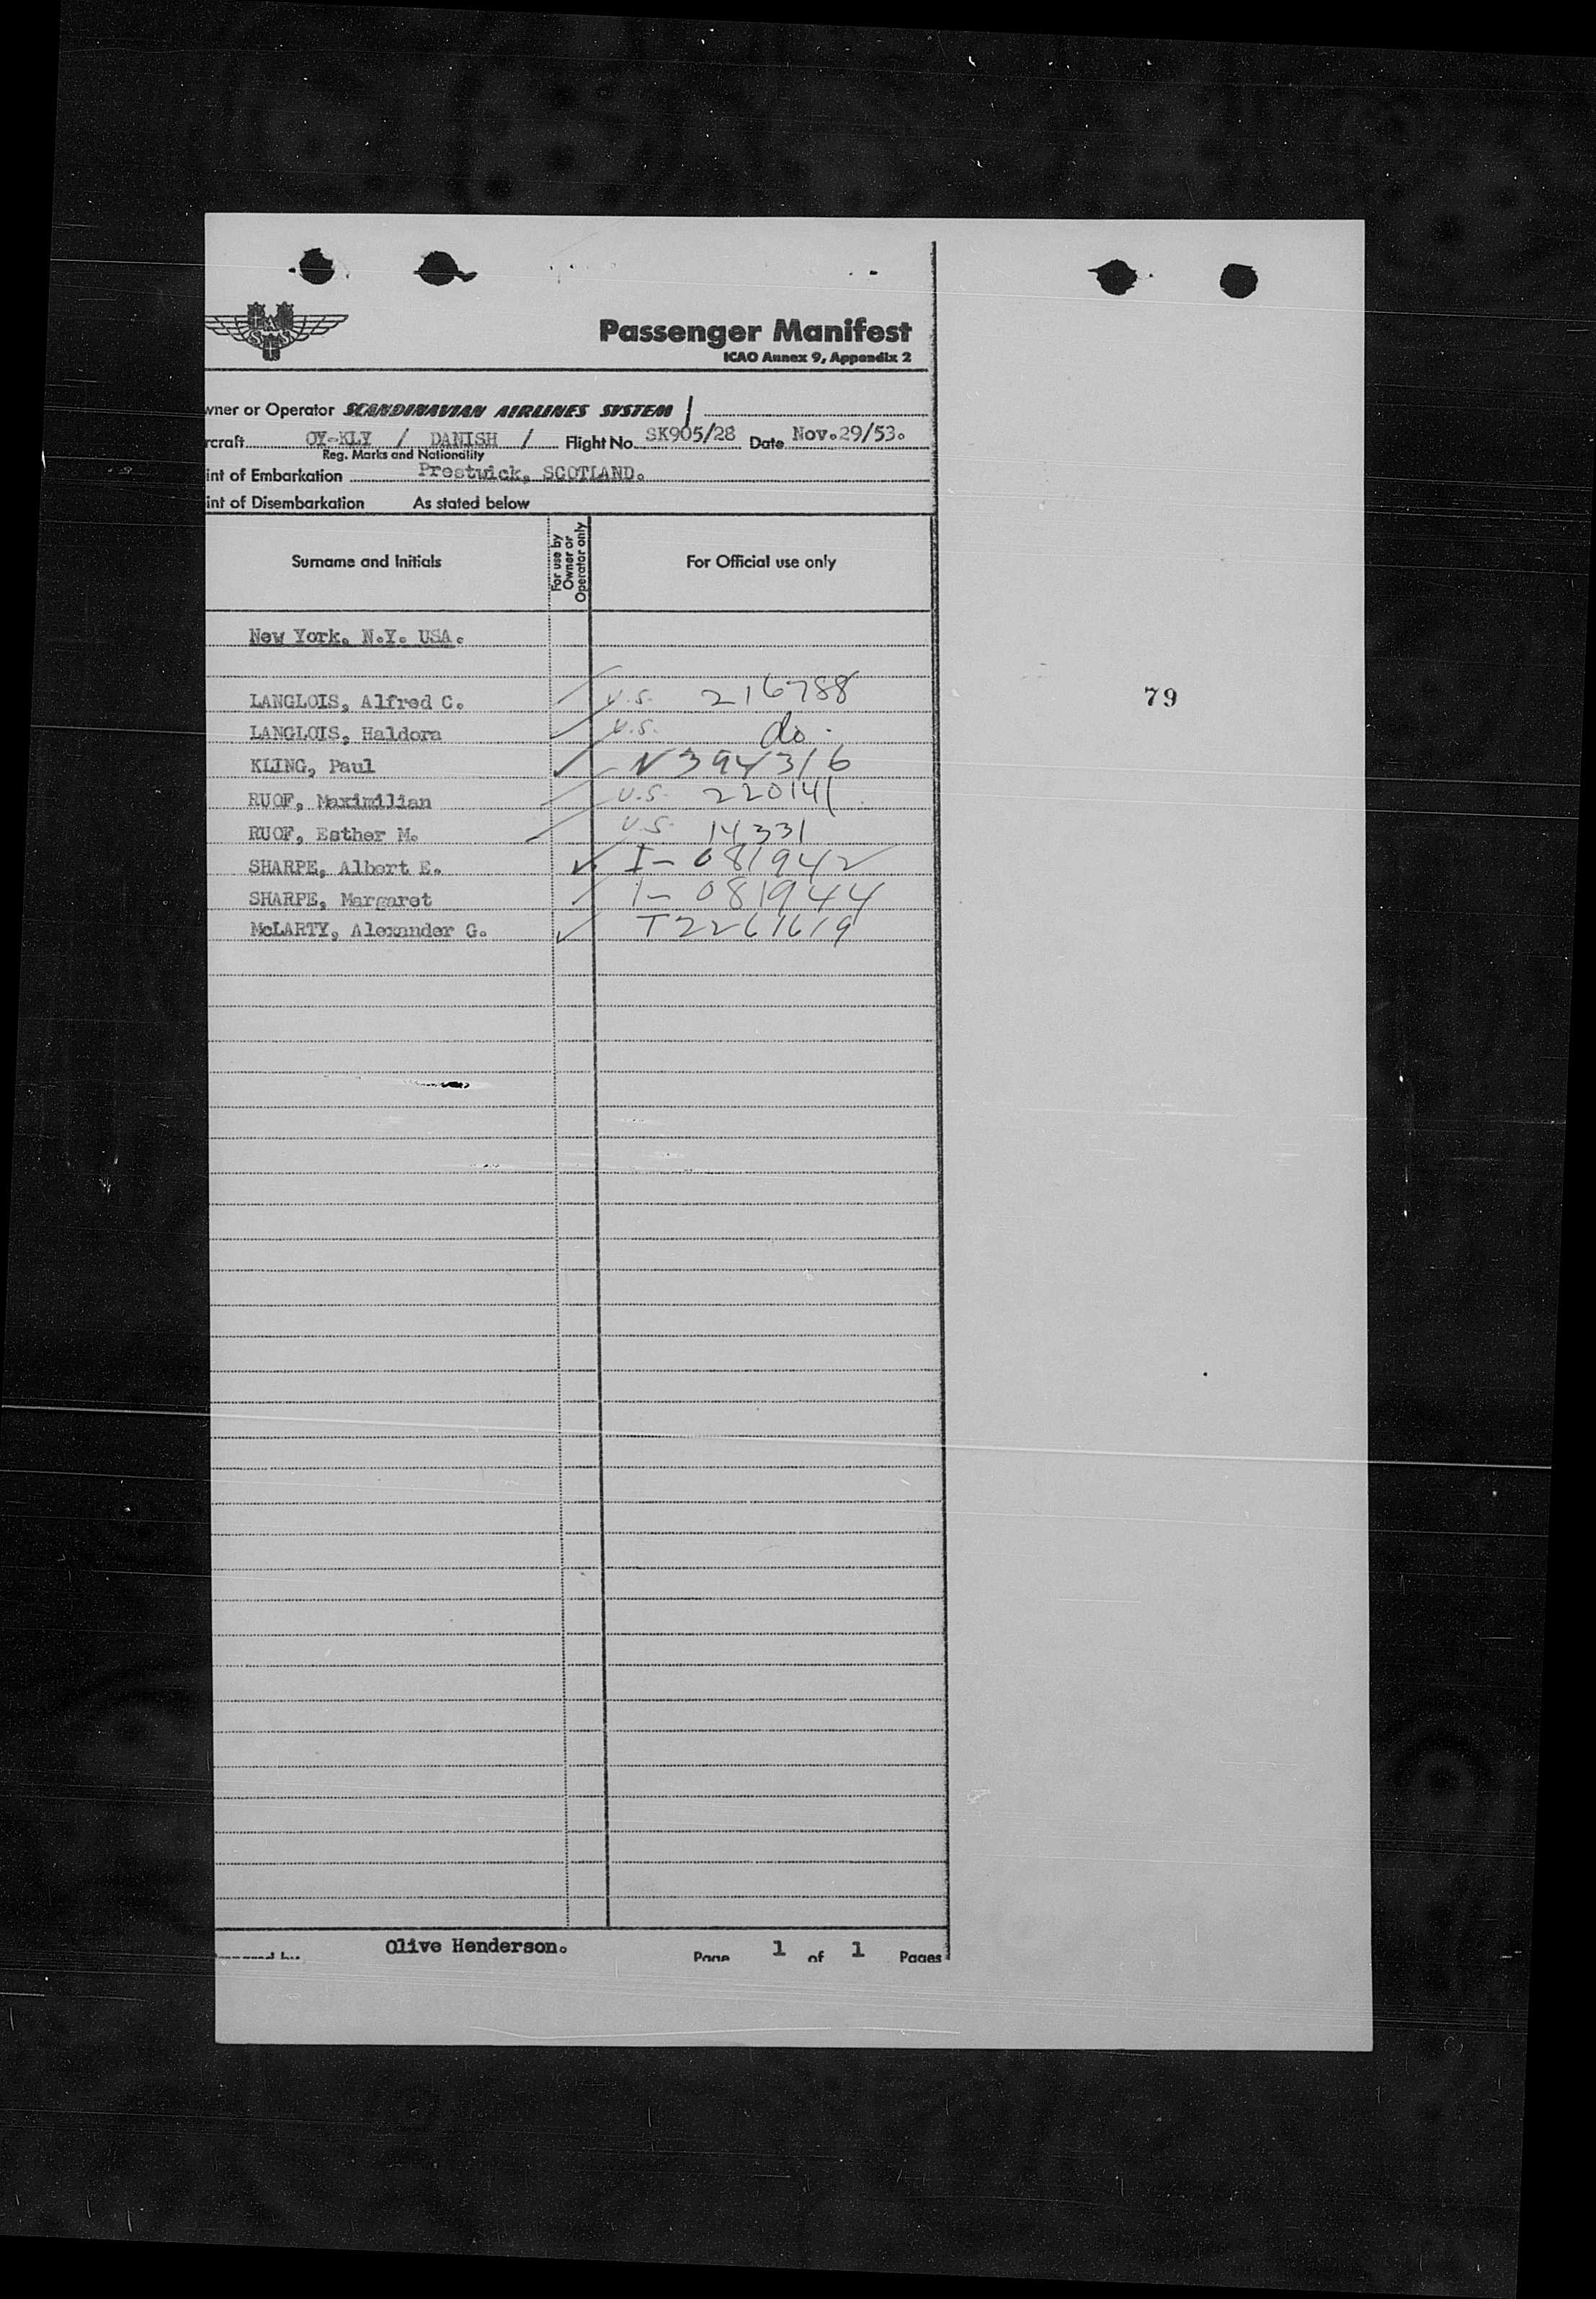 SAS
Passenger Manifest
ICAO Annex 9, Appendix 2
wner or Operator SCANDINAVIAN AIRLINES SYSTEM
rcraft OY-KLY / DANISH / Flight No. SK905/28 Date Nov.29/53.
Reg. Marks and Nationality
int of Embarkation Prestwick, SCOTLAND.
int of Disembarkation As stated below
Surname and Initials For use by Owner or Operator only For Official use only
New York, N.Y. USA.
LANGLOIS, Alfred C. U.S. 216788
79
LANGLOIS, Haldora U.S. do.
KLING, Paul N394316
RUOF, Maximilian U.S. 220141
RUOF, Esther M. U.S. 14331
SHARPE, Albert E. I-081942
SHARPE, Margaret I-081944
McLARTY, Alexander G. T2261619
Olive Henderson. Page 1 of 1 Pages